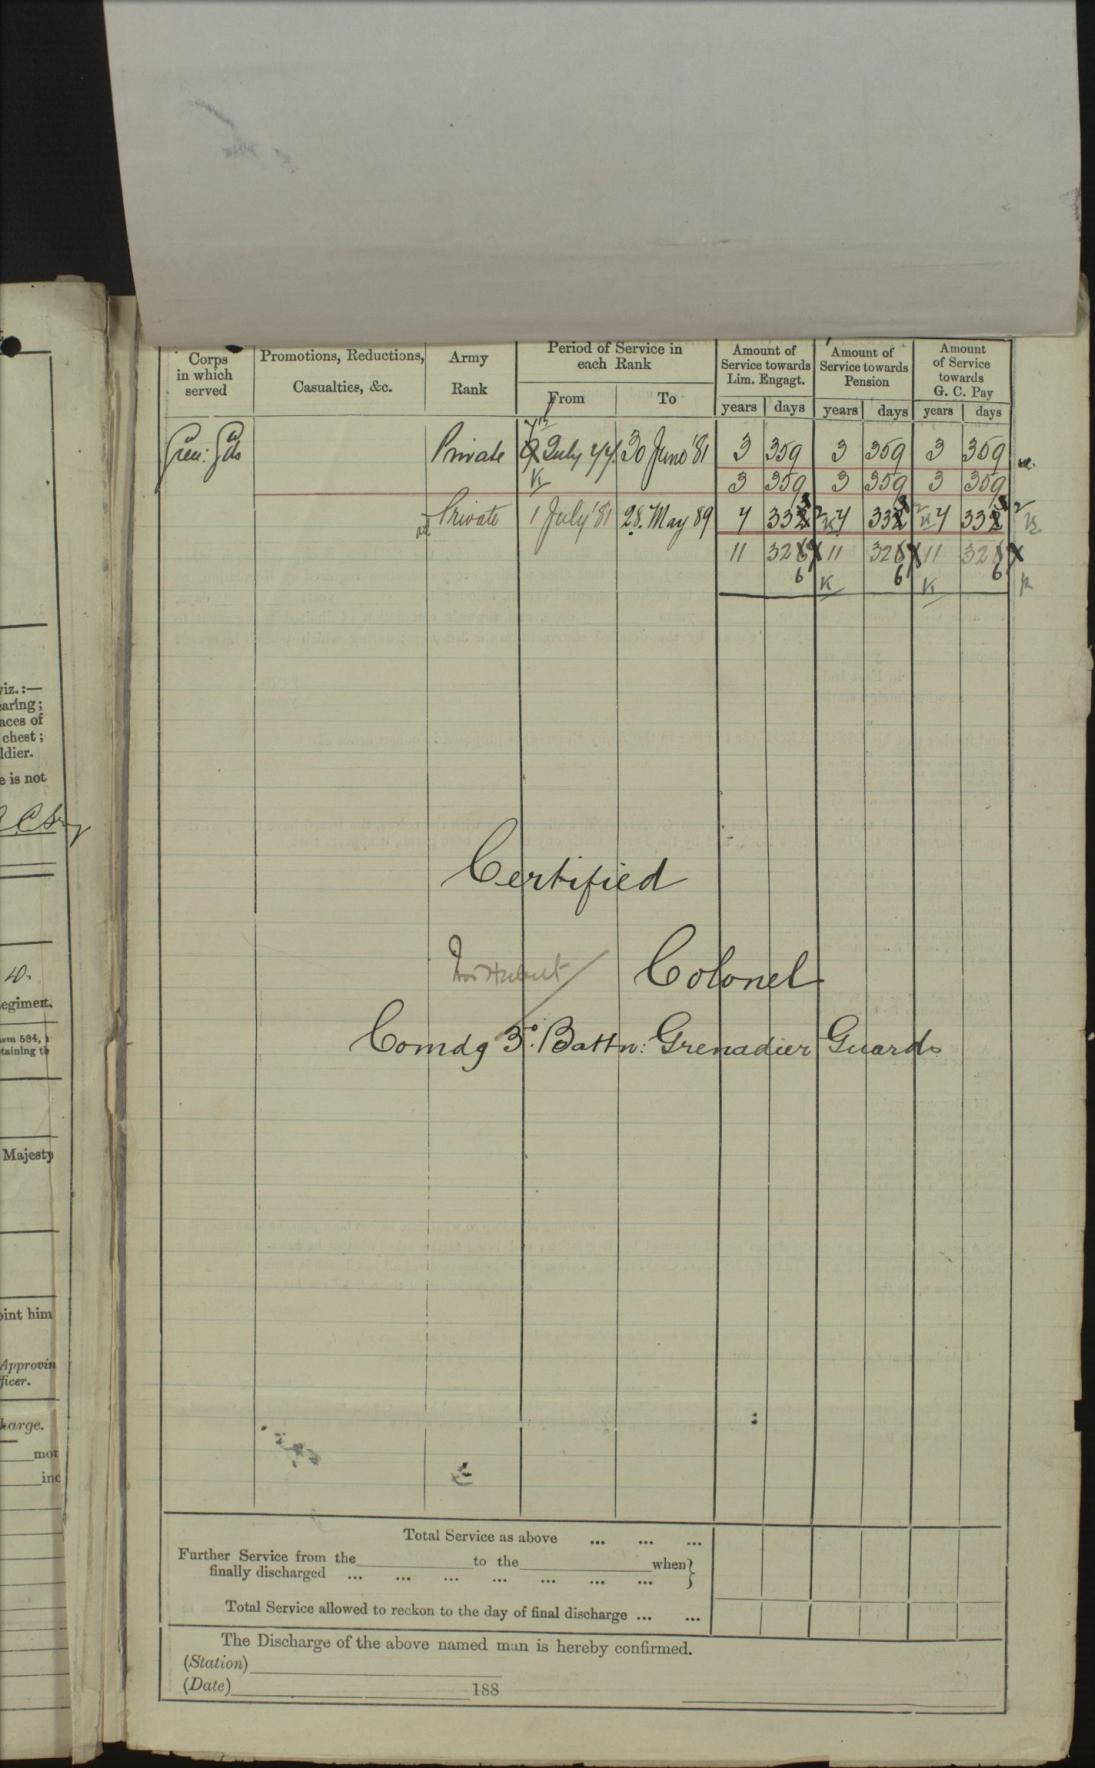 Corps in which served
Promotions, Reductions, Casualties, &c.
Army Rank
Period of Service in each Rank
From To
Amount of Service towards Lim. Engagt.
Amount of Service towards Pension
Amount of Service towards G. C. Pay
years days years days years days
Gren: Gds Private 7th July 77. 30 June '81 3 359 3 359 3 359
3 359 3 359 3 359
Private 1 July '81 28. May 89 7 333 7 333 7 333
11 326 11 326 11 326
K K
Certified
Colonel
Comdg 3. Battn: Grenadier Guards
Total Service as above ... ... ...
Further Service from the to the when }
finally discharged ... ... ... ... ... ... ...
Total Service allowed to reckon to the day of final discharge ... ...
The Discharge of the above named man is hereby confirmed.
(Station)
(Date) 188
viz.:—
aring;
aces of
chest;
ldier.
e is not
egiment.
orm 584,
taining th
Majesty
oint him
Approvin
ficer.
harge.
mon
inc